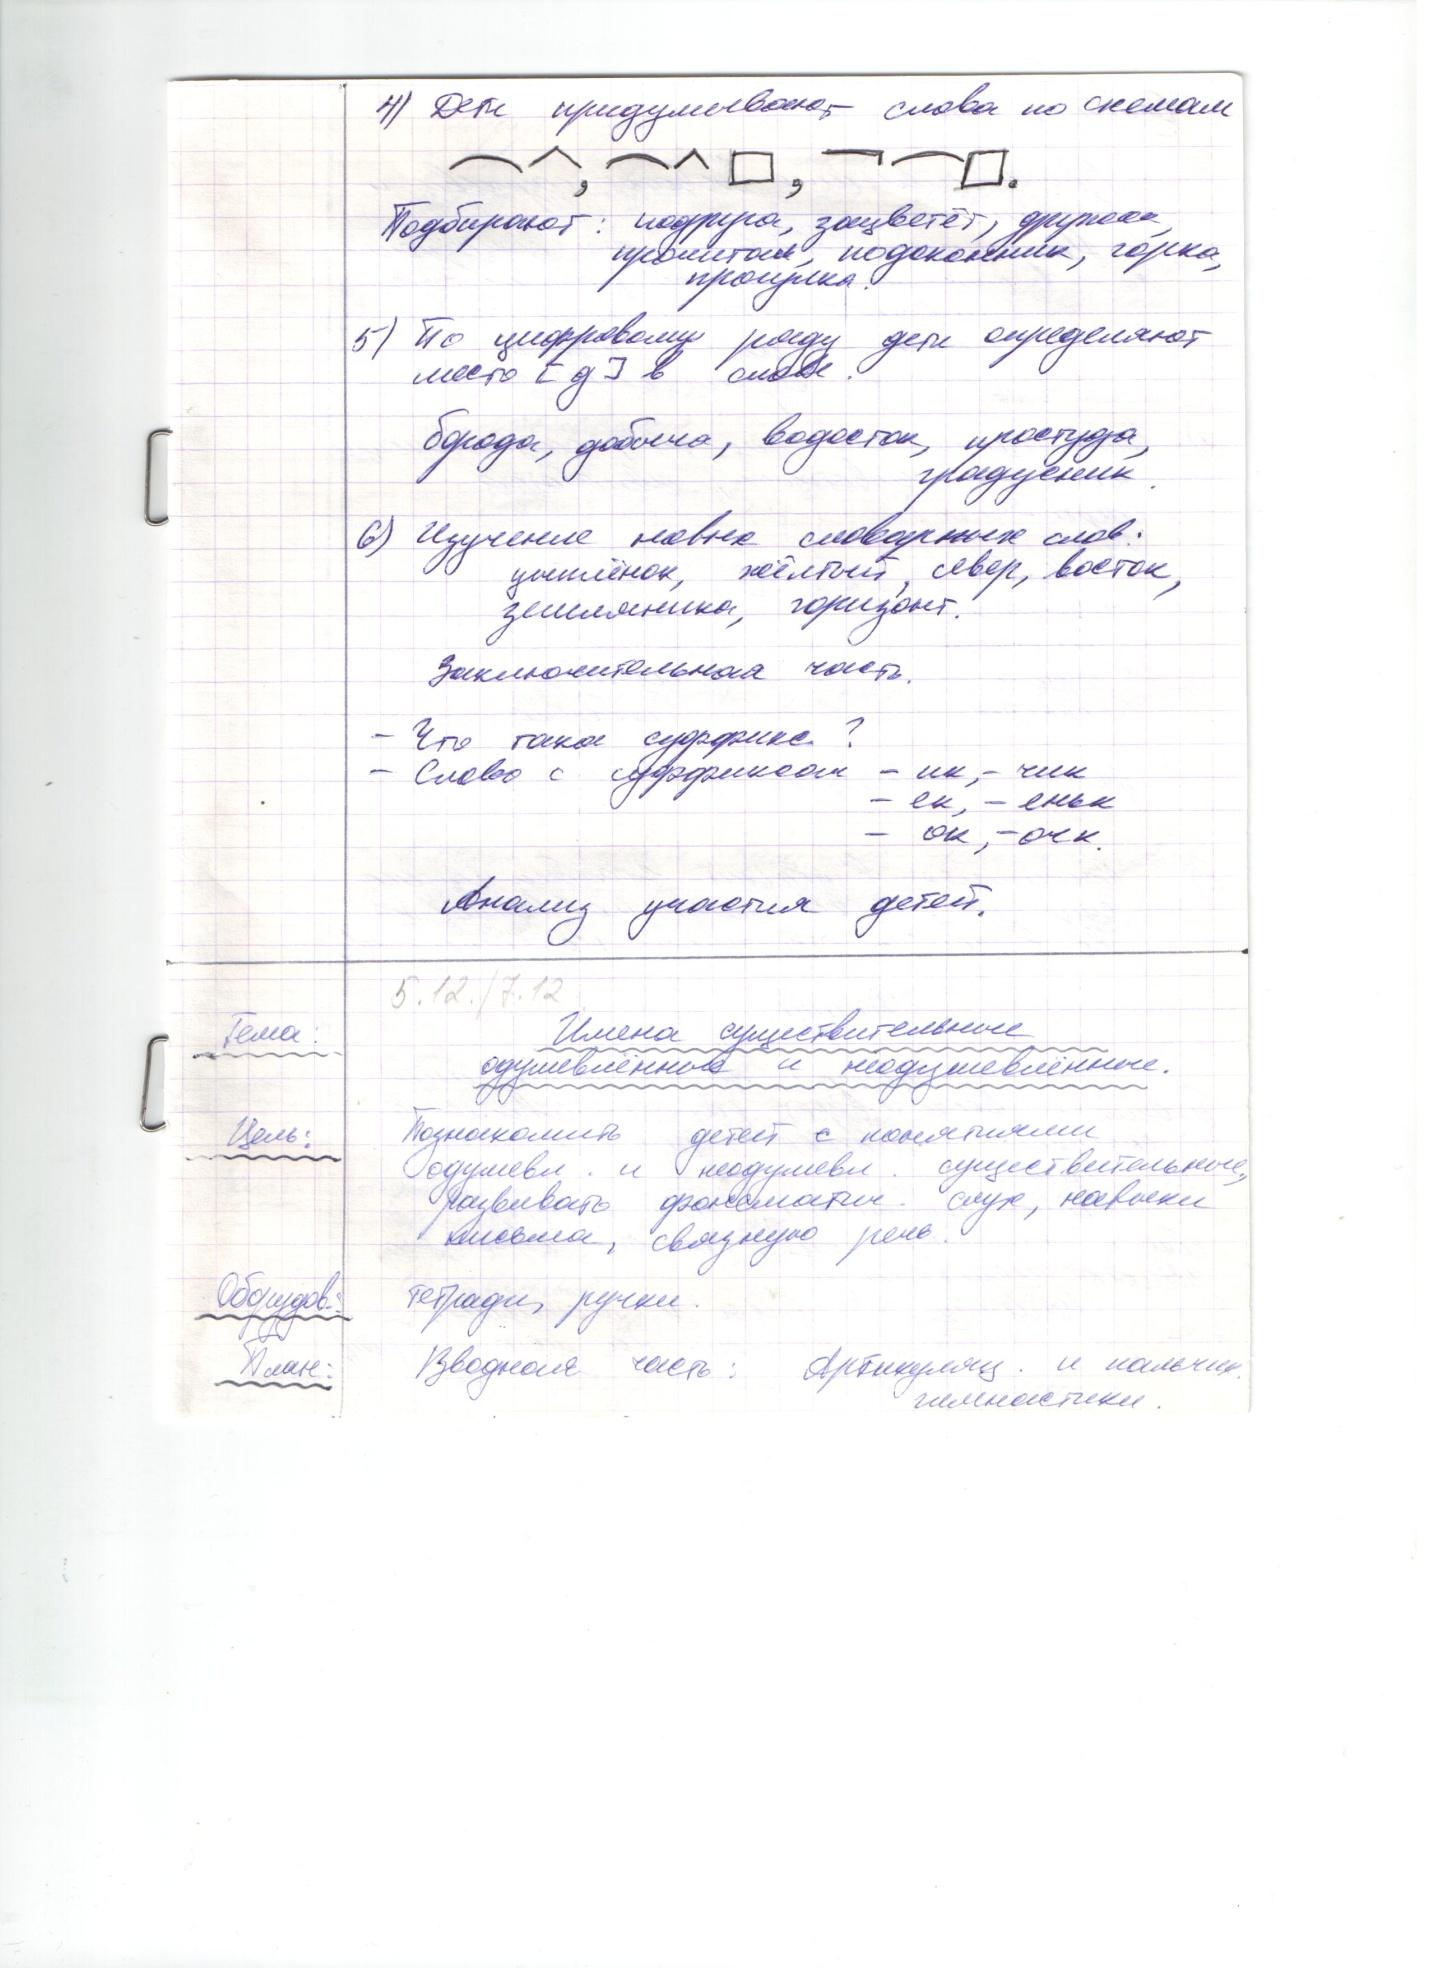 4) Дети придумывают слова по схемам
Подбирают: подруга, зацветёт, дружок,
прочитал, подоконник, горка,
прогулка.
5) По цифровому ряду дети определяют
место [д] в слове.
борода, добыча, водосток, простуда,
градусник.
6) Изучение новых словарных слов:
цыплёнок, жёлтый, север, восток,
земляника, горизонт.
Заключительная часть.
- Что такое суффикс?
- Слова с суффиксом - ик, - чик
- ек, - еньк
- ок, - очк.
Анализ участия детей.
5.12./7.12
Тема: Имена существительные
одушевлённые и неодушевлённые.
Цель: Познакомить детей с понятиями
одушевл. и неодушевл. существительные,
развивать фонематич. слух, навыки
письма, связную речь.
Оборудов.: тетради, ручки.
План: Вводная часть: Артикуляц. и пальчик.
гимнастики.